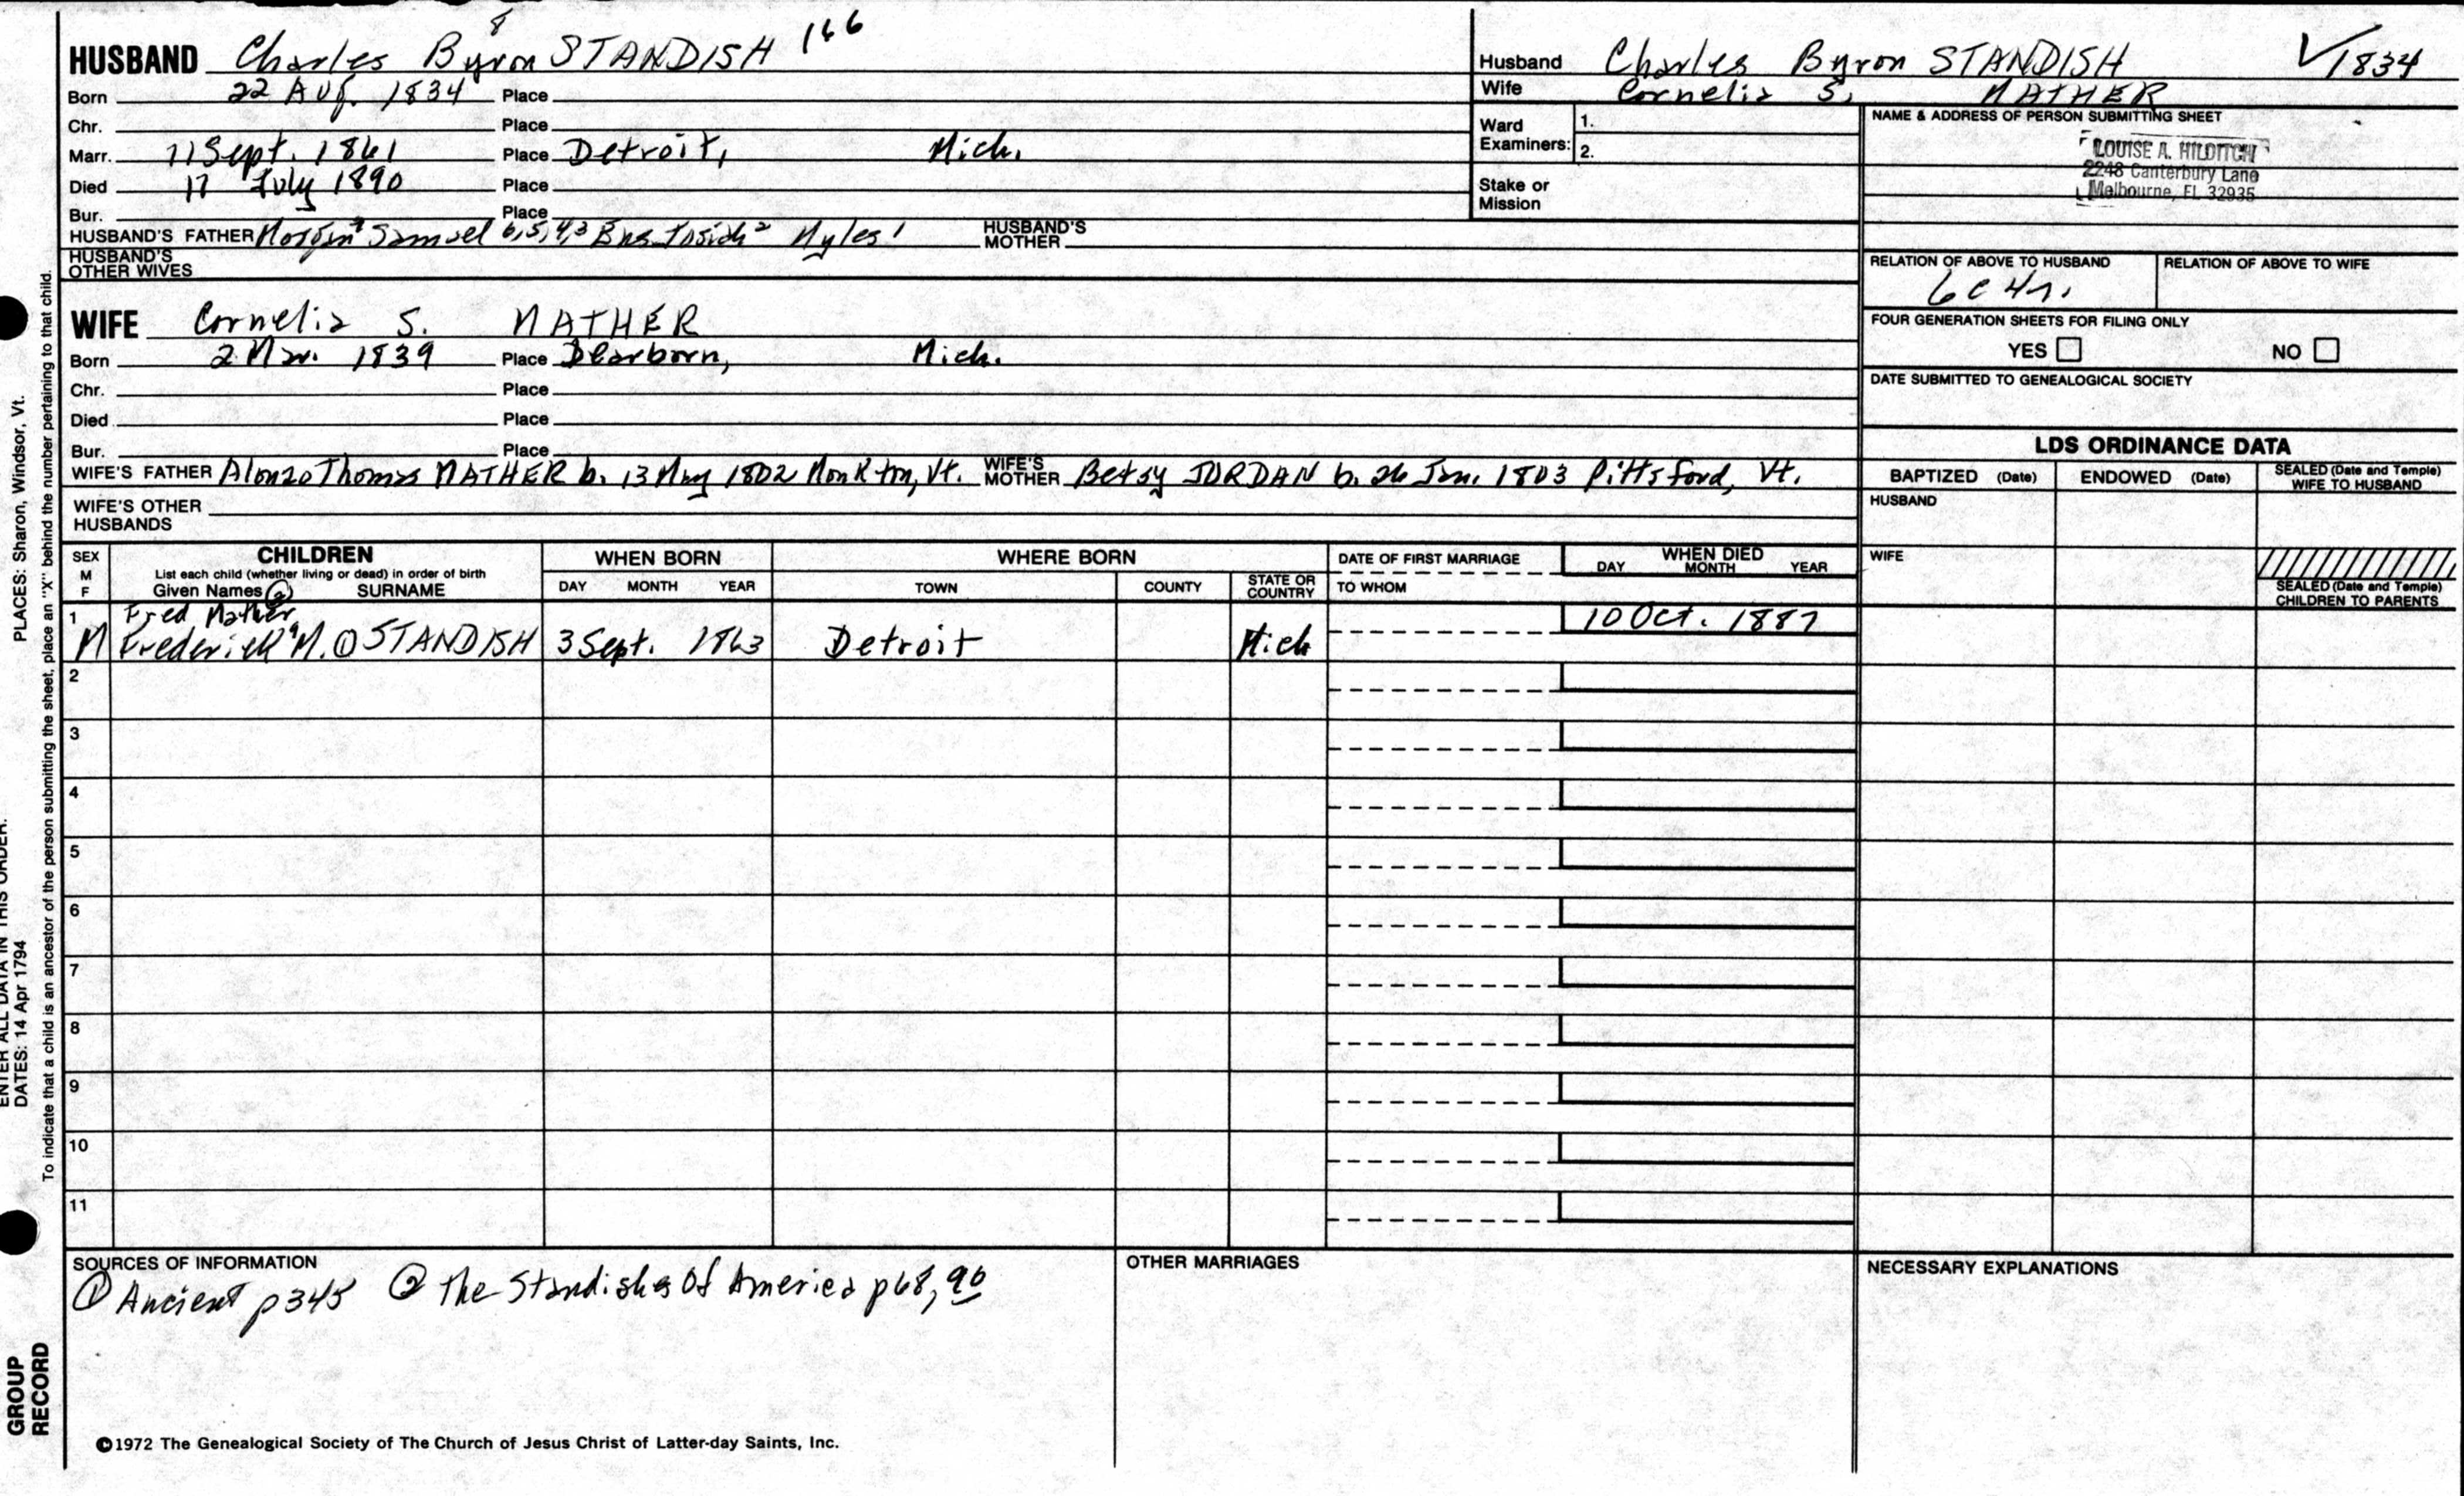 HUSBAND Charles Byron 8 STANDISH 166
Born 22 Aug. 1834 Place
Chr. Place
Marr. 11 Sept. 1861 Place Detroit, Mich.
Died 17 July 1890 Place
Bur. Place
HUSBAND'S FATHER Samuel 6,5,4,3 Ens Josiah 2 Myles 1 HUSBAND'S MOTHER
HUSBAND'S OTHER WIVES
WIFE Cornelia S. MATHER
Born 2 Mar. 1839 Place Dearborn, Mich.
Chr. Place
Died Place
Bur. Place
WIFE'S FATHER Alonzo Thomas MATHER b. 13 May 1802 Monkton, Vt. WIFE'S MOTHER Betsy JORDAN b. 26 Jan. 1803 Pittsford, Vt.
WIFE'S OTHER HUSBANDS
Husband Charles Byron STANDISH √1834
Wife Cornelia S. MATHER
Ward Examiners: 1.
2.
Stake or Mission
NAME & ADDRESS OF PERSON SUBMITTING SHEET
LOUISE A. HILDITCH
2248 Canterbury Lane
Melbourne, FL 32935
RELATION OF ABOVE TO HUSBAND RELATION OF ABOVE TO WIFE
6c4r.
FOUR GENERATION SHEETS FOR FILING ONLY
YES NO
DATE SUBMITTED TO GENEALOGICAL SOCIETY
LDS ORDINANCE DATA
BAPTIZED (Date) ENDOWED (Date) SEALED (Date and Temple) WIFE TO HUSBAND
HUSBAND
WIFE
SEALED (Date and Temple) CHILDREN TO PARENTS
SEX M F
CHILDREN
List each child (whether living or dead) in order of birth
Given Names ② SURNAME
WHEN BORN
DAY MONTH YEAR
WHERE BORN
TOWN COUNTY STATE OR COUNTRY
DATE OF FIRST MARRIAGE
TO WHOM
WHEN DIED
DAY MONTH YEAR
1 Fred Mather 10 Oct. 1887
M Frederick 9 M. ① STANDISH 3 Sept. 1863 Detroit Mich
2
3
4
5
6
7
8
9
10
11
SOURCES OF INFORMATION
① Ancient p345 ② The Standishes Of America p68, 90
OTHER MARRIAGES
NECESSARY EXPLANATIONS
©1972 The Genealogical Society of The Church of Jesus Christ of Latter-day Saints, Inc.
GROUP
RECORD
ENTER ALL DATA IN THIS ORDER.
DATES: 14 Apr 1794
PLACES: Sharon, Windsor, Vt.
To indicate that a child is an ancestor of the person submitting the sheet, place an "X" behind the number pertaining to that child.